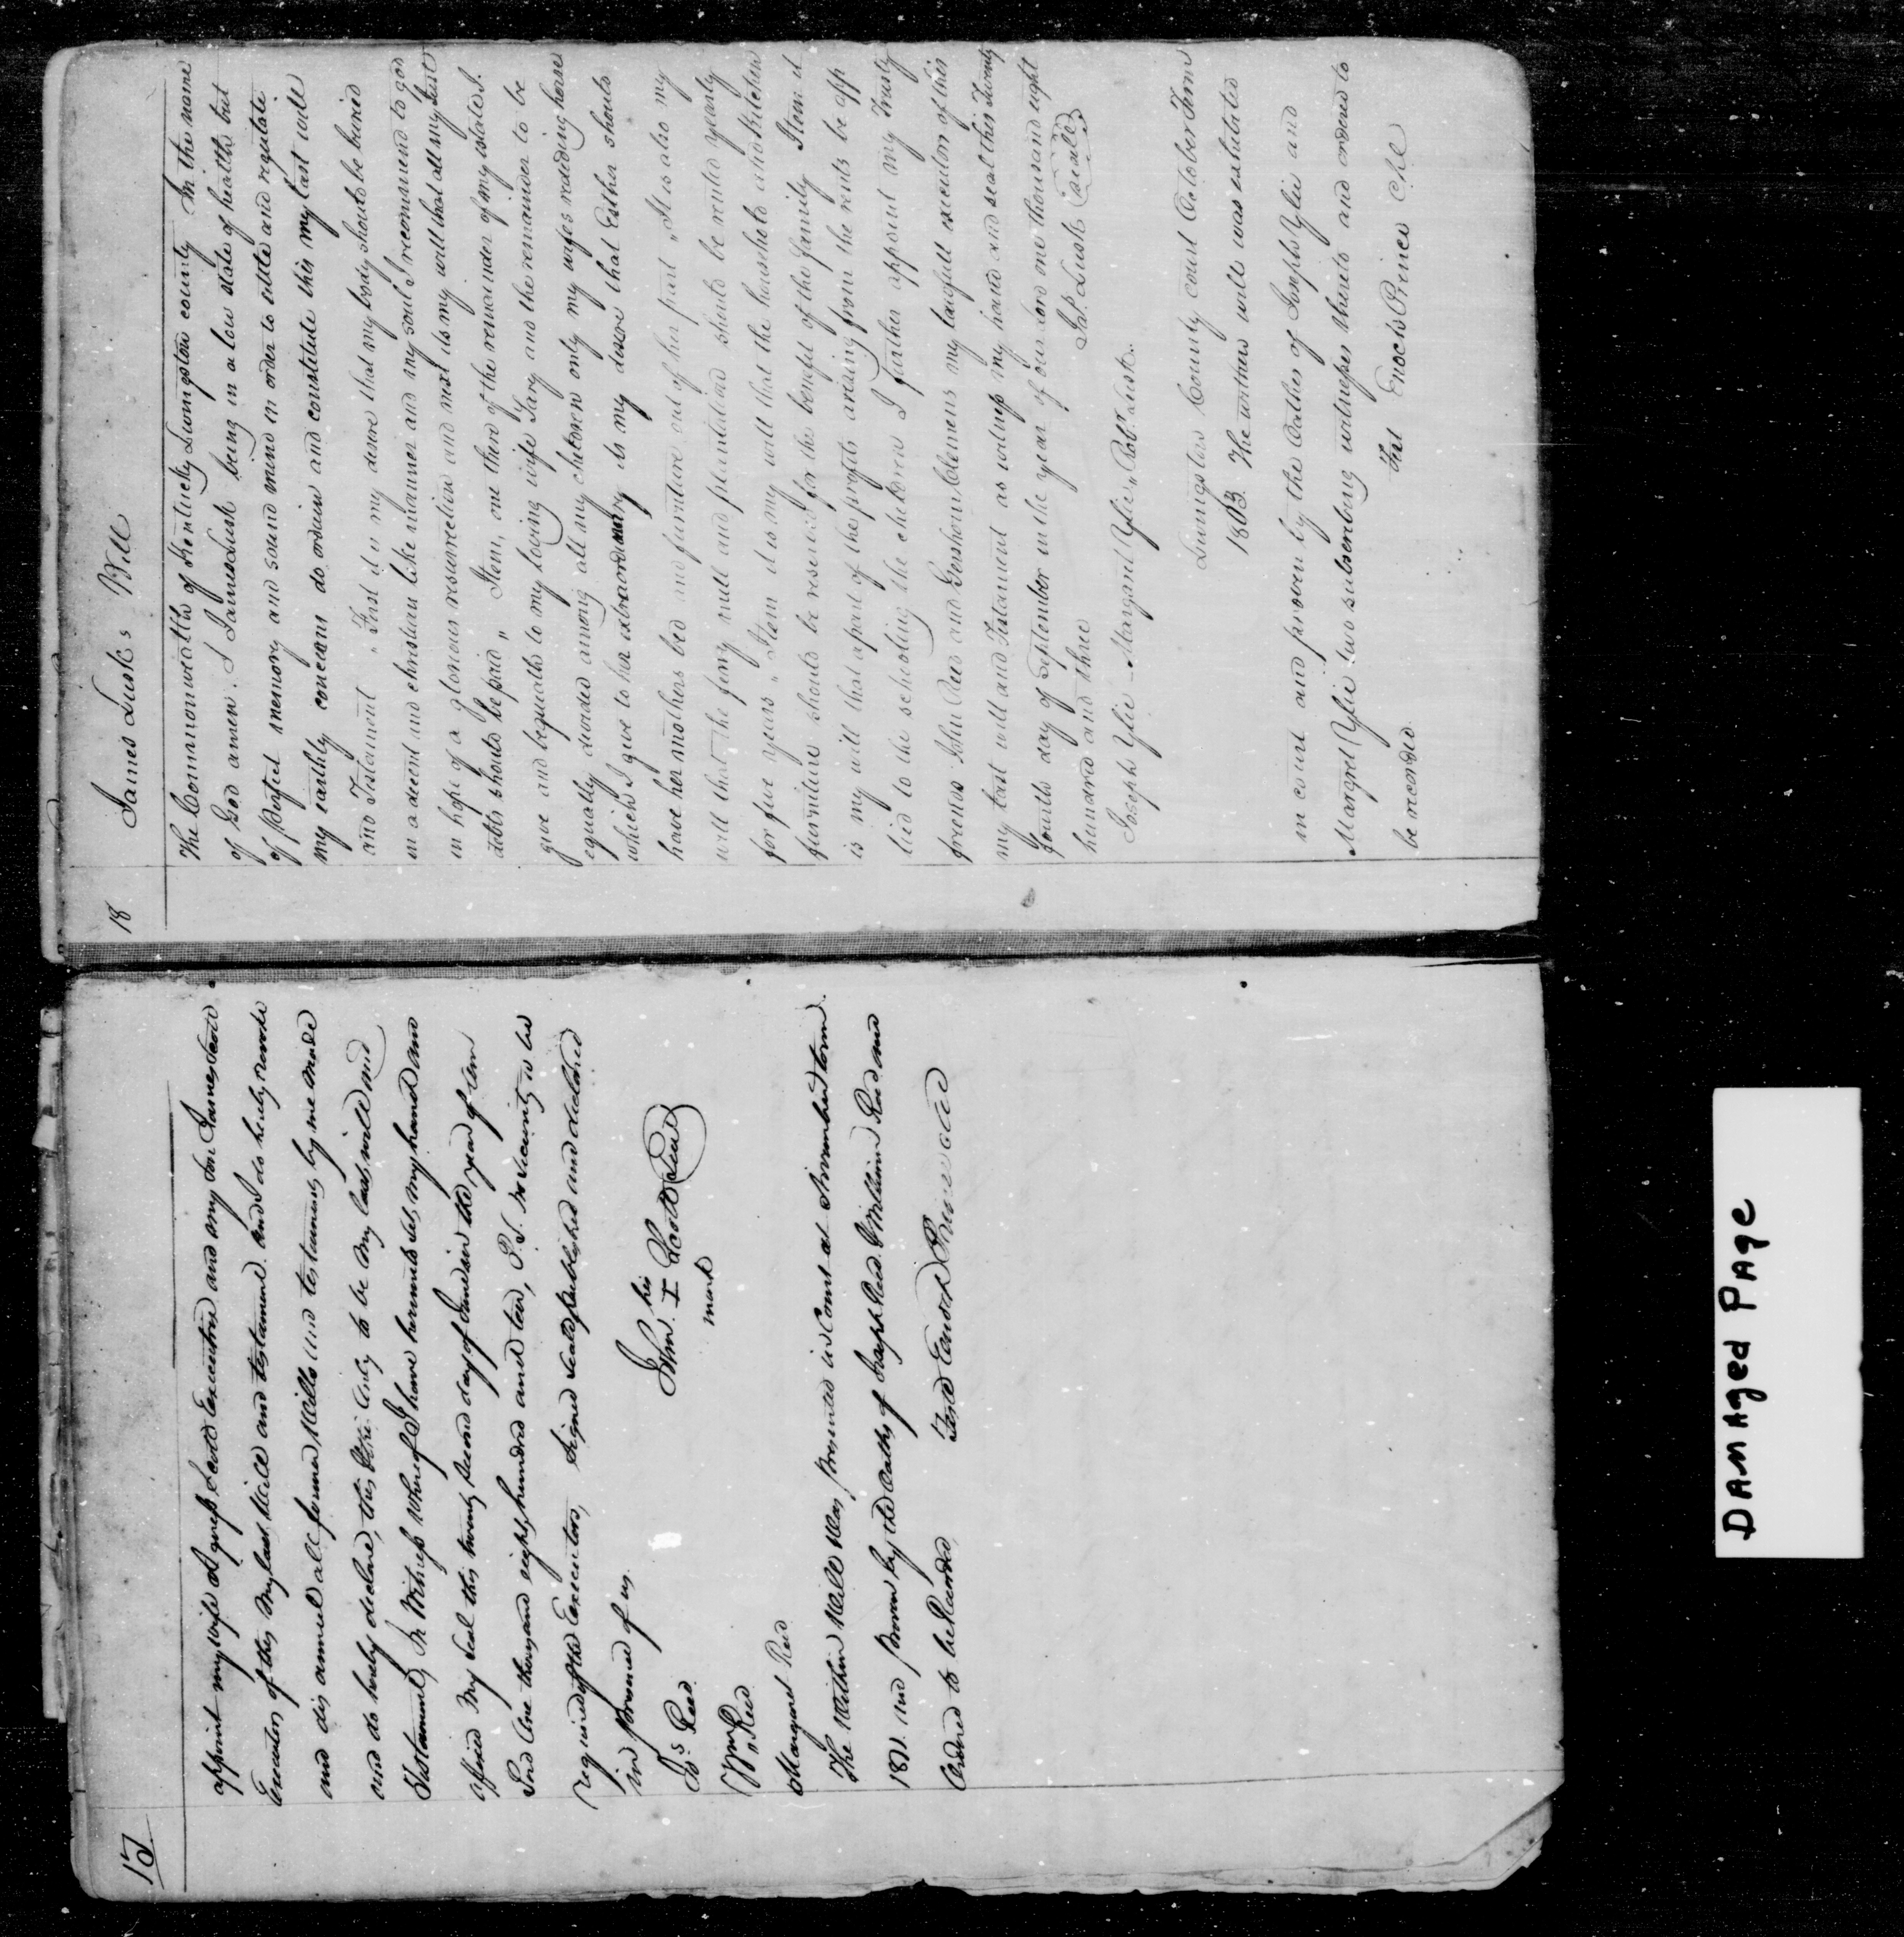 17
appoint my wife Agness Scott Executrix and my Son James Scott
Executors of this my last Will and testament. And I do hereby revoke
and dis annul all former Wills and testaments by me made
and do hereby declare, this only to be my last will and
Testament, In Witness whereof I have hereunto set my hand and
affixed my Seal this twenty Second day of June in the year of Our
Lord One thousand eight hundred and two, P.S. No Security to be
required of the Executors, Signed Sealed published and declared
in presence of us.
his
John I Scott Seal
mark
Jos. Reed
Wm Reed
Margaret Reed
The Within Will Was presented in Court at November term
and proven by the Oaths of Joseph Reed & William Reed and
Ordered to be Recorded Teste Enoch Prince clk
18
James Lusk s Will
The Commonwealth of Kentucky Livingston county In the name
of God amen. I James Lusk being in a low state of health but
of Perfect memory and sound mind in order to settle and regulate
my earthly concerns do ordain and constitute this my last will
and Testament " First it is my desire that my body should be buried
in a decent and christian like manner and my soul I recommend to god
in hope of a glorious resurrection and next its my will that all my Just
debts should be paid " Item, one third of the remainder of my estate I
give and bequeath to my loving wife Sary and the remainder to be
equally divided among all my children only my wifes rededing horse
which I give to her extraordinary its my desire that Esther should
have her mothers bed and furniture out of her part " It is also my
will that the ferry mill and plantation should be rented yearly
for five years " Item it is my will that the household and kitchen
furniture should be reserved for the benefit of the family Item it
is my will that apart of the profits arising from the rents be app
lied to the schooling the children I further appoint my Trusty
friends John Reed and Gershom Clemens my lawfull executors of this
my last will and Testament as witness my hand and seal this Twenty
fourth day of September in the year of our Lord one thousand eight
hundred and three Jas. Lusk seale
Joseph Ylie - Margaret Ylie " Robt. Lusk.
Livingston County court October Term
1803. The written will was exhibited
in court and proven by the Oathes of Joseph Ylie and
Margret Ylie two subscribing witnesses thereto and ordered to
be recorded
Test Enoch Prince Clk
DAMAged PAge